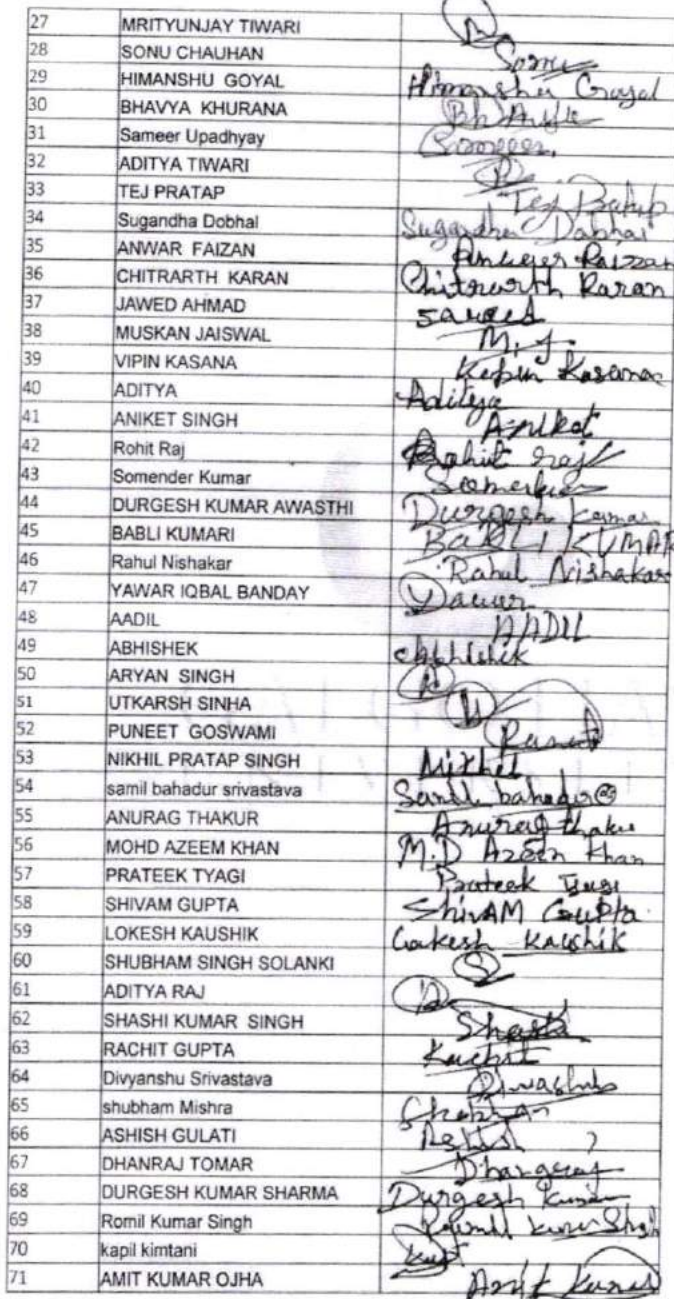 27 MRITYUNJAY TIWARI
28 SONU CHAUHAN Sonu
29 HIMANSHU GOYAL Himanshu Goyal
30 BHAVYA KHURANA
31 Sameer Upadhyay Sameer
32 ADITYA TIWARI
33 TEJ PRATAP Tej
34 Sugandha Dobhal Sugandha Dobhal
35 ANWAR FAIZAN
36 CHITRARTH KARAN Chitrarth Karan
37 JAWED AHMAD
38 MUSKAN JAISWAL M. J.
39 VIPIN KASANA Kasana
40 ADITYA Aditya
41 ANIKET SINGH Aniket
42 Rohit Raj Rohit raj
43 Somender Kumar
44 DURGESH KUMAR AWASTHI Durgesh Kumar
45 BABLI KUMARI BABLI KUMAR
46 Rahul Nishakar Rahul Nishakar
47 YAWAR IQBAL BANDAY Yawar
48 AADIL AADIL
49 ABHISHEK Abhishik
50 ARYAN SINGH
51 UTKARSH SINHA
52 PUNEET GOSWAMI
53 NIKHIL PRATAP SINGH Nikhil
54 samil bahadur srivastava Samil bahadur
55 ANURAG THAKUR Anurag thakur
56 MOHD AZEEM KHAN M.D Azeem Khan
57 PRATEEK TYAGI Prateek Tyagi
58 SHIVAM GUPTA ShivAM Gupta
59 LOKESH KAUSHIK Lokesh Kaushik
60 SHUBHAM SINGH SOLANKI S
61 ADITYA RAJ
62 SHASHI KUMAR SINGH
63 RACHIT GUPTA Rachit
64 Divyanshu Srivastava
65 shubham Mishra
66 ASHISH GULATI
67 DHANRAJ TOMAR Dhanraj
68 DURGESH KUMAR SHARMA Durgesh Kumar
69 Romil Kumar Singh Romil Kumar Singh
70 kapil kimtani
71 AMIT KUMAR OJHA Amit Kumar